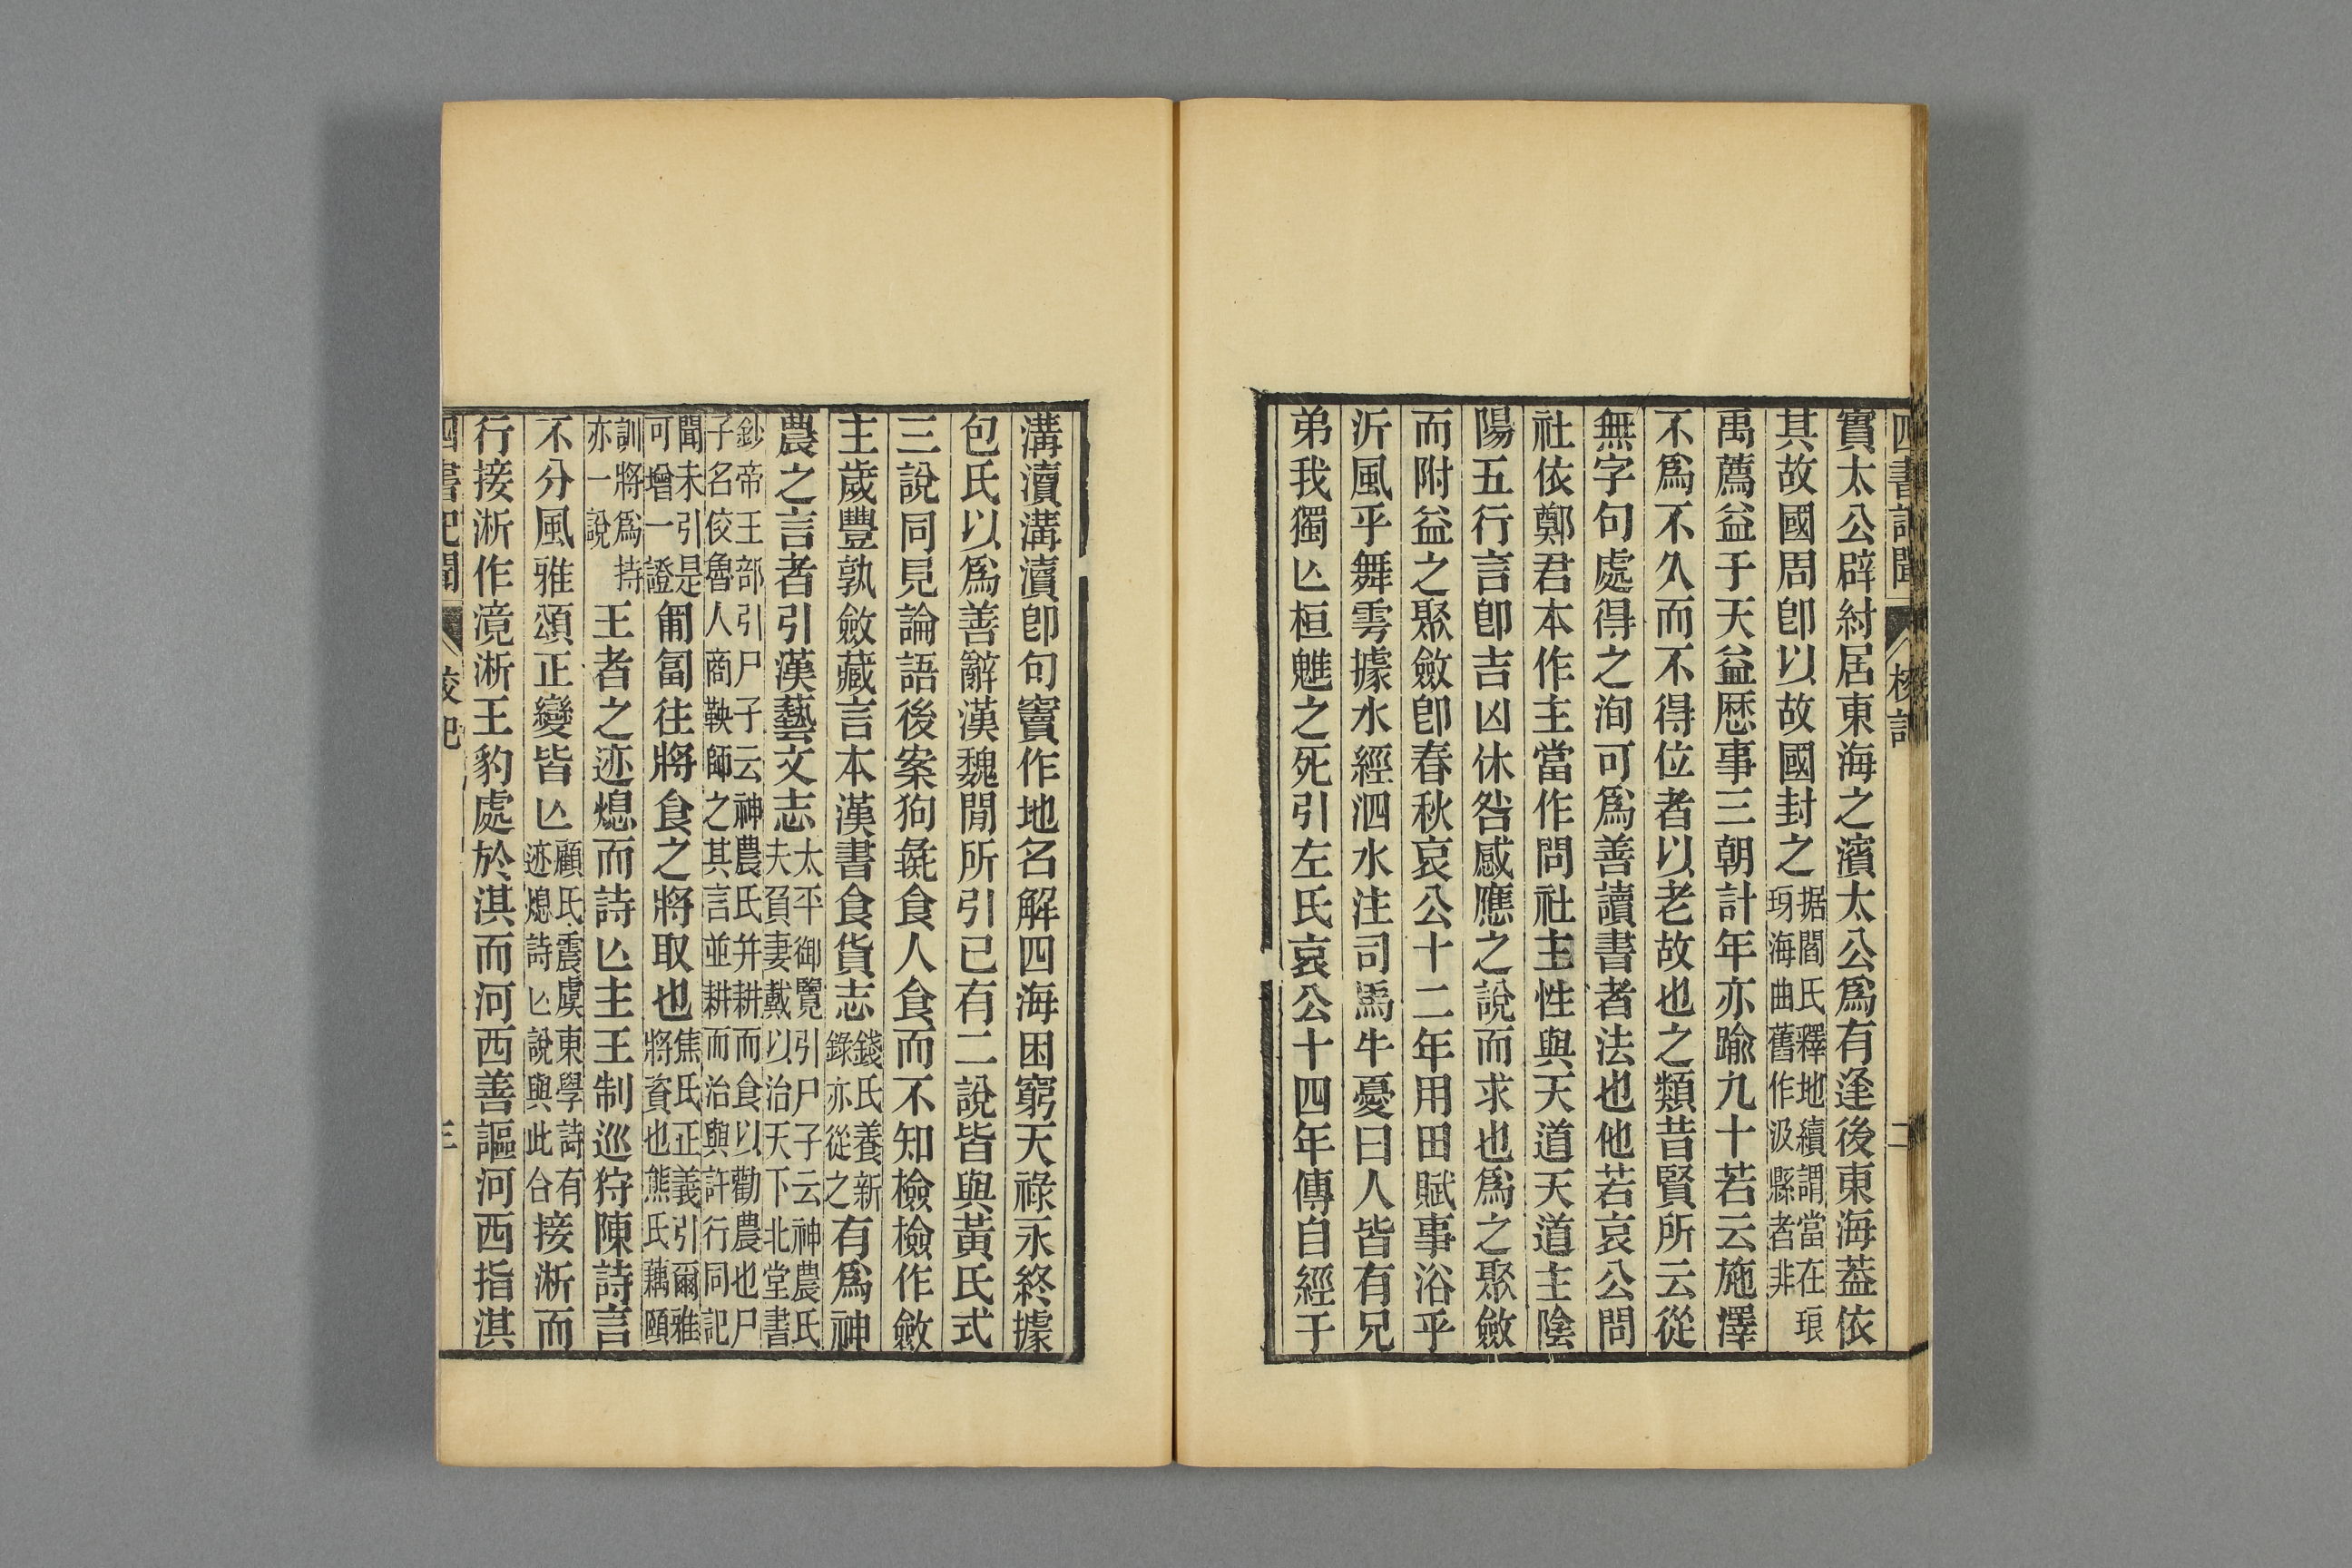 四書記聞 校記 二
實太公辟紂居東海之濱太公爲有逢後東海蓋依
其故國周卽以故國封之据閻氏釋地續謂當在琅
琊海曲舊作汲縣者非
禹薦益于天益歷事三朝計年亦踰九十若云施澤
不爲不久而不得位者以老故也之類昔賢所云從
無字句處得之洵可爲善讀書者法也他若哀公問
社依鄭君本作主當作問社主性與天道天道主陰
陽五行言卽吉凶休咎感應之說而求也爲之聚斂
而附益之聚斂卽春秋哀公十二年用田賦事浴乎
沂風乎舞雩據水經泗水注司馬牛憂曰人皆有兄
弟我獨亾桓魋之死引左氏哀公十四年傳自經于
溝瀆溝瀆卽句竇作地名解四海困窮天祿永終據
包氏以爲善辭漢魏閒所引已有二說皆與黃氏式
三說同見論語後案狗彘食人食而不知檢檢作斂
主歲豐孰斂藏言本漢書食貨志錢氏養新
錄亦從之有爲神
農之言者引漢藝文志太平御覽引尸子云神農氏
夫負妻戴以治天下北堂書
鈔帝王部引尸子云神農氏并耕而食以勸農也尸
子名佼魯人商鞅師之其言並耕而治與許行同記
聞未引是
可增一證匍匐往將食之將取也焦氏正義引爾雅
將資也熊氏藕頤
訓將爲持
亦一說王者之迹熄而詩亾主王制巡狩陳詩言
不分風雅頌正變皆亾顧氏震虞東學詩有
迹熄詩亾說與此合接淅而
行接淅作滰淅王豹處於淇而河西善謳河西指淇
四書記聞 校記 三